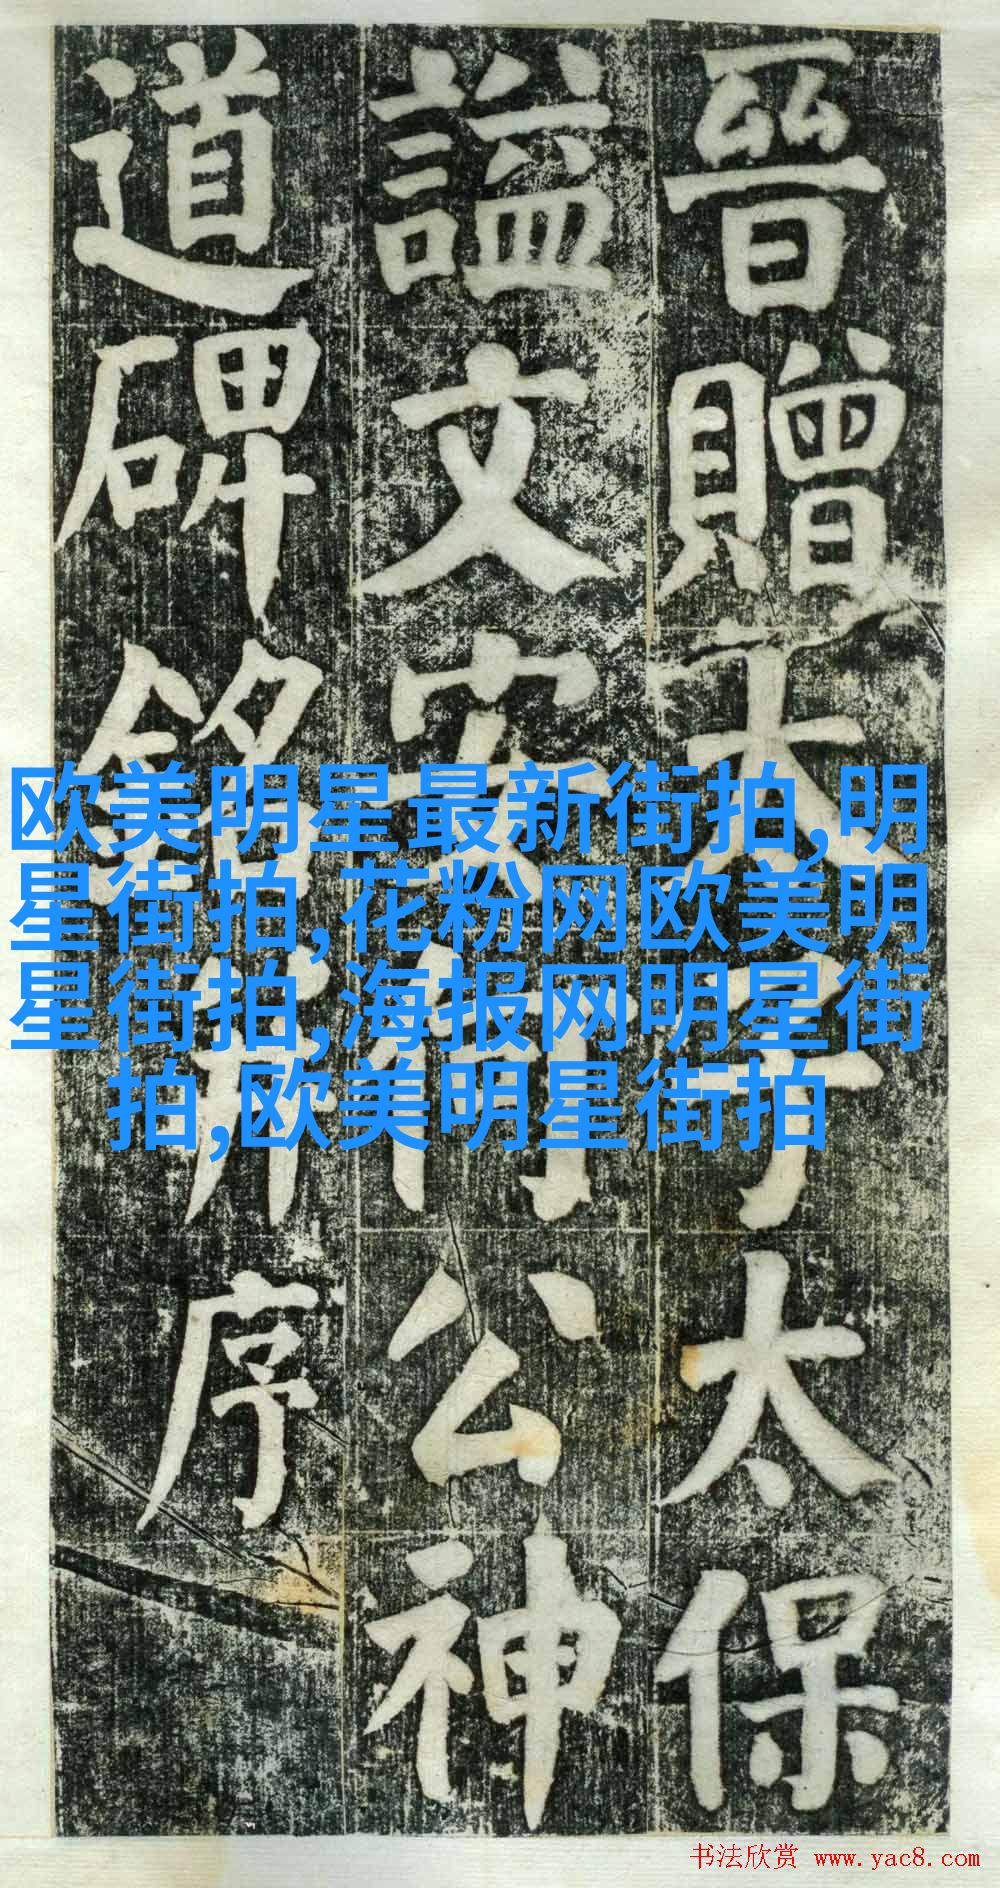 晉贈太子太保
謚文安何公神
道碑銘并序
欧美明星最新街拍,明
星街拍,花粉网欧美明
星街拍,海报网明星街
拍,欧美明星街拍
书法欣赏 www.yac8.com